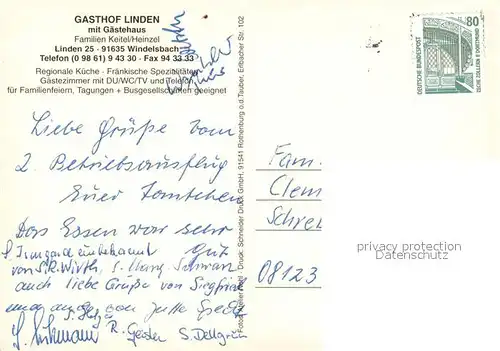 GASTHOF LINDEN
mit Gästehaus
Familien Keitel/Heinzel
Linden 25 - 91635 Windelsbach
Telefon (0 98 61) 9 43 30 - Fax 94 33 33
Regionale Küche - Fränkische Spezialitäten
Gästezimmer mit DU/WC/TV und Telefon,
für Familienfeiern, Tagungen + Busgesellschaften geeignet
Liebe Grüße vom
2. Betriebsausflug
Euer
Das Essen war sehr
gut
S. Irmgard
von S.R. Wirth, S. Schwarz
auch liebe Grüße von Siegfried
und von Jutta
R. Geisler S. Dellgrün
Druck: Schneider Druck GmbH, 91541 Rothenburg o.d.Tauber, Erlbacher Str. 102
80
DEUTSCHE BUNDESPOST
ZECHE ZOLLERN II DORTMUND
Fam.
Clem
Schre
08123
privacy protection
Datenschutz